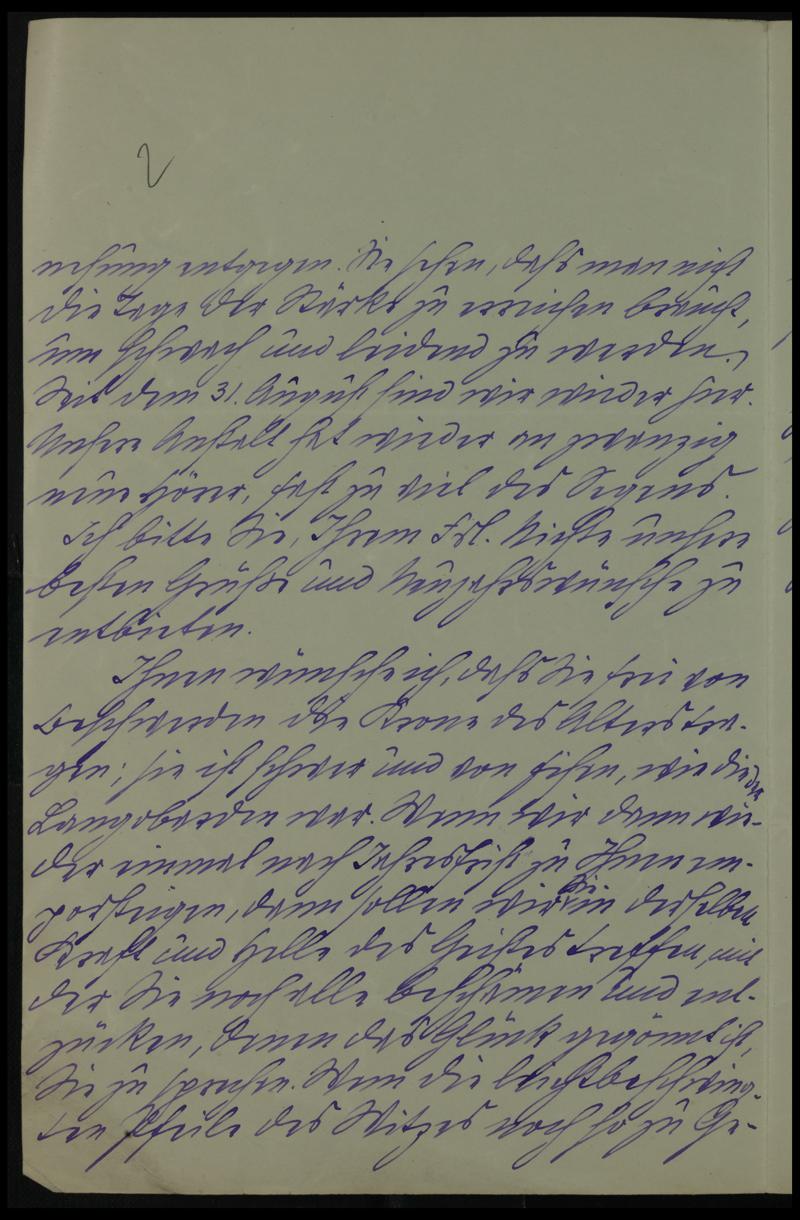 2
nehmung entgegen. Sie sehen, dass man nicht
die Tage der Stärke zu erreichen braucht,
um schwach und leidend zu werden.
Seit dem 31. August sind wir wieder hier.
Unsere Anstalt hat wieder an zwanzig
neue Hörer, fast zu viel des Segens.
Ich bitte Sie, Ihrem Frl. Nichte unsere
besten Grüße und Neujahrswünsche zu
entbieten.
Ihnen wünsche ich, dass Sie frei von
Beschwerden die Krone des Alters tra-
gen; sie ist schwer und von Eisen, wie die der
Langobarden war. Wenn wir dann wie-
der einmal nach Jahresfrist zu Ihnen em-
porsteigen, dann sollen wir Sie in derselben
Kraft und Helle des Geistes treffen, mit
der Sie noch alle beschämen und ent-
zücken, denen das Glück gegönnt ist,
Sie zu sprechen. Wem die leichtbeschwing-
ten Pfeile des Witzes noch so zu Ge-